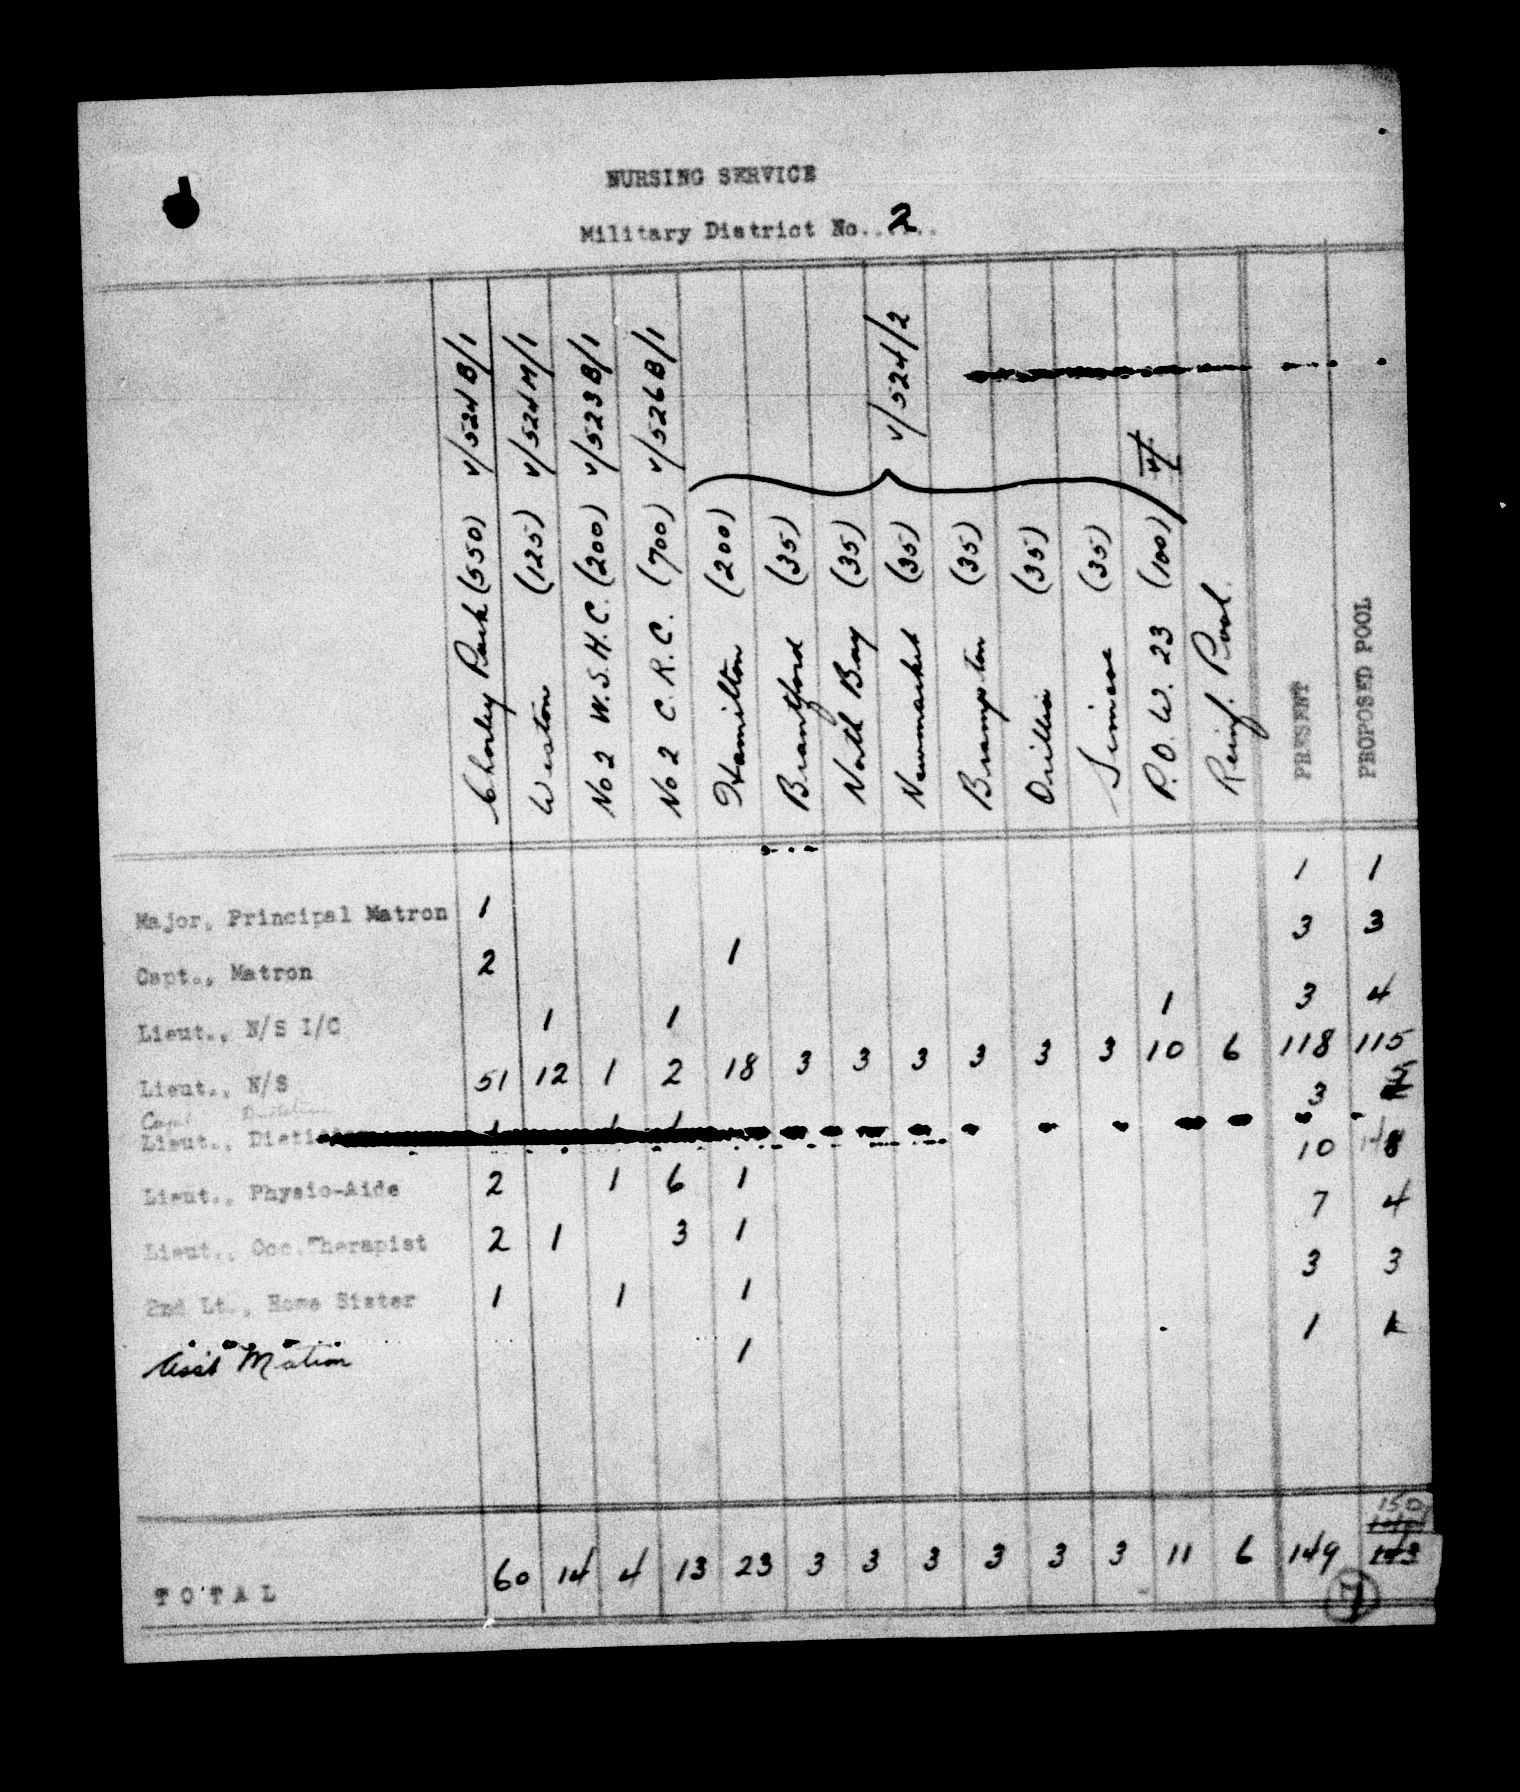 NURSING SERVICE
Military District No. 2
Chorley Park (550) V/524 B/1
Weston (125) V/524 M/1
No 2 W.S.H.C. (200) V/523 B/1
No 2 C.R.C. (700) V/526 B/1
Hamilton (200)
Brantford (35)
North Bay (35)
Newmarket (35) V/524/2
Brampton (35)
Orillia (35)
Simcoe (35)
P.O.W. 23 (100) V/
Reinf. Pool
PRESENT
PROPOSED POOL
Major, Principal Matron 1 1 1
Capt., Matron 2 1 3 3
Lieut., N/S I/C 1 1 1 3 4
Lieut., N/S 51 12 1 2 18 3 3 3 3 3 3 10 6 118 115
Capt
Lieut., Dietician 1 1 1 3 5
Lieut., Physio-Aide 2 1 6 1 10 8
Lieut., Occ.Therapist 2 1 3 1 7 4
2nd Lt., Home Sister 1 1 1 3 3
Asst Matron 1 1
150
TOTAL 60 14 4 13 23 3 3 3 3 3 3 11 6 149 143